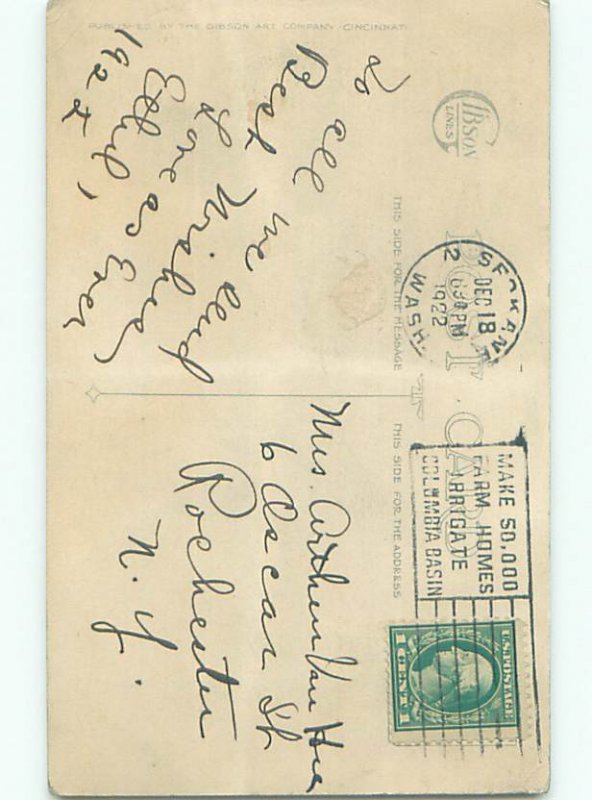 GIBSON
LINES
POST CARD
THIS SIDE FOR THE MESSAGE
THIS SIDE FOR THE ADDRESS
SPOKANE
DEC 18
6 30 PM
1922
WASH.
2
MAKE 50,000
FARM HOMES
IRRIGATE
COLUMBIA BASIN
U.S. POSTAGE
1 CENT 1
To all
we send
Best Wishes
& Love as Ever
Ethel,
1922
Mrs. Arthur Van
6 Oscar St
Rochester
N. Y.
PUBLISHED BY THE GIBSON ART COMPANY CINCINNATI